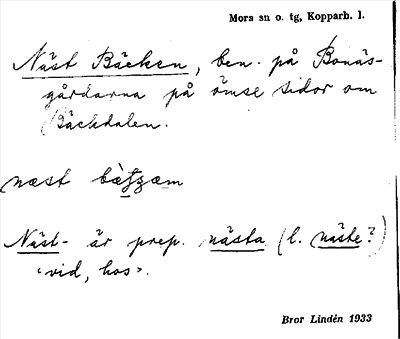 Mora sn o. tg, Kopparb. l.
Näst Bäcken, ben. på Bonäs-
gårdarna på ömse sidor om
Bäckdalen.
næst
Näst- är prep. nästa (l. näste?)
‹vid, hos›.
Bror Lindén 1933